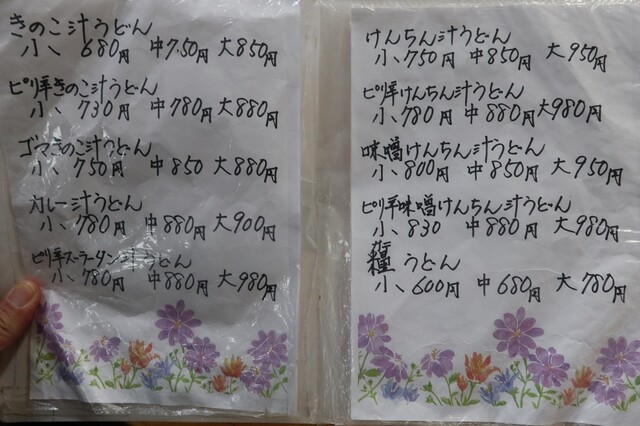 きのこ汁うどん
小、680円 中750円 大850円
ピリ辛きのこ汁うどん
小、730円 中780円 大880円
ゴマきのこ汁うどん
小、750円 中850 大880円
カレー汁うどん
小、780円 中880円 大900円
ピリ辛スーラータン汁うどん
小、780円 中880円 大980円
けんちん汁うどん
小、750円 中850円 大950円
ピリ辛けんちん汁うどん
小、780円 中880円大980円
味噌けんちん汁うどん
小、800円 中850円 大950円
ピリ辛味噌けんちん汁うどん
小、830 中880円 大980円
糧うどん
小、600円 中680円 大780円